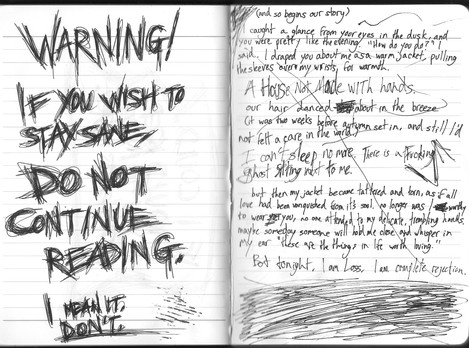 WARNING!
IF YOU WISH TO
STAY SANE,
DO NOT
CONTINUE
READING.
I MEAN IT.
DON'T.
(and so begins our story)
I caught a glance from your eyes in the dusk, and
you were pretty like the evening. "How do you do?" I
said. I draped you about me as a warm jacket, pulling
the sleeves over my wrists, for warmth.
A House Not Made with hands.
our hair danced about in the breeze
(it was two weeks before autumn set in, and still I'd
not felt a care in the world.)
I can't sleep no more. There is a Fucking
ghost sitting next to me.
but then my jacket became tattered and torn, as if all
love had been vanquished from it's soul. no longer was I worthy
to wear you, no one attended to my delicate, trembling hands.
maybe someday someone will hold me close and whisper in
my ear "these are the things in life worth loving."
But tonight, I am Loss, I am complete rejection.